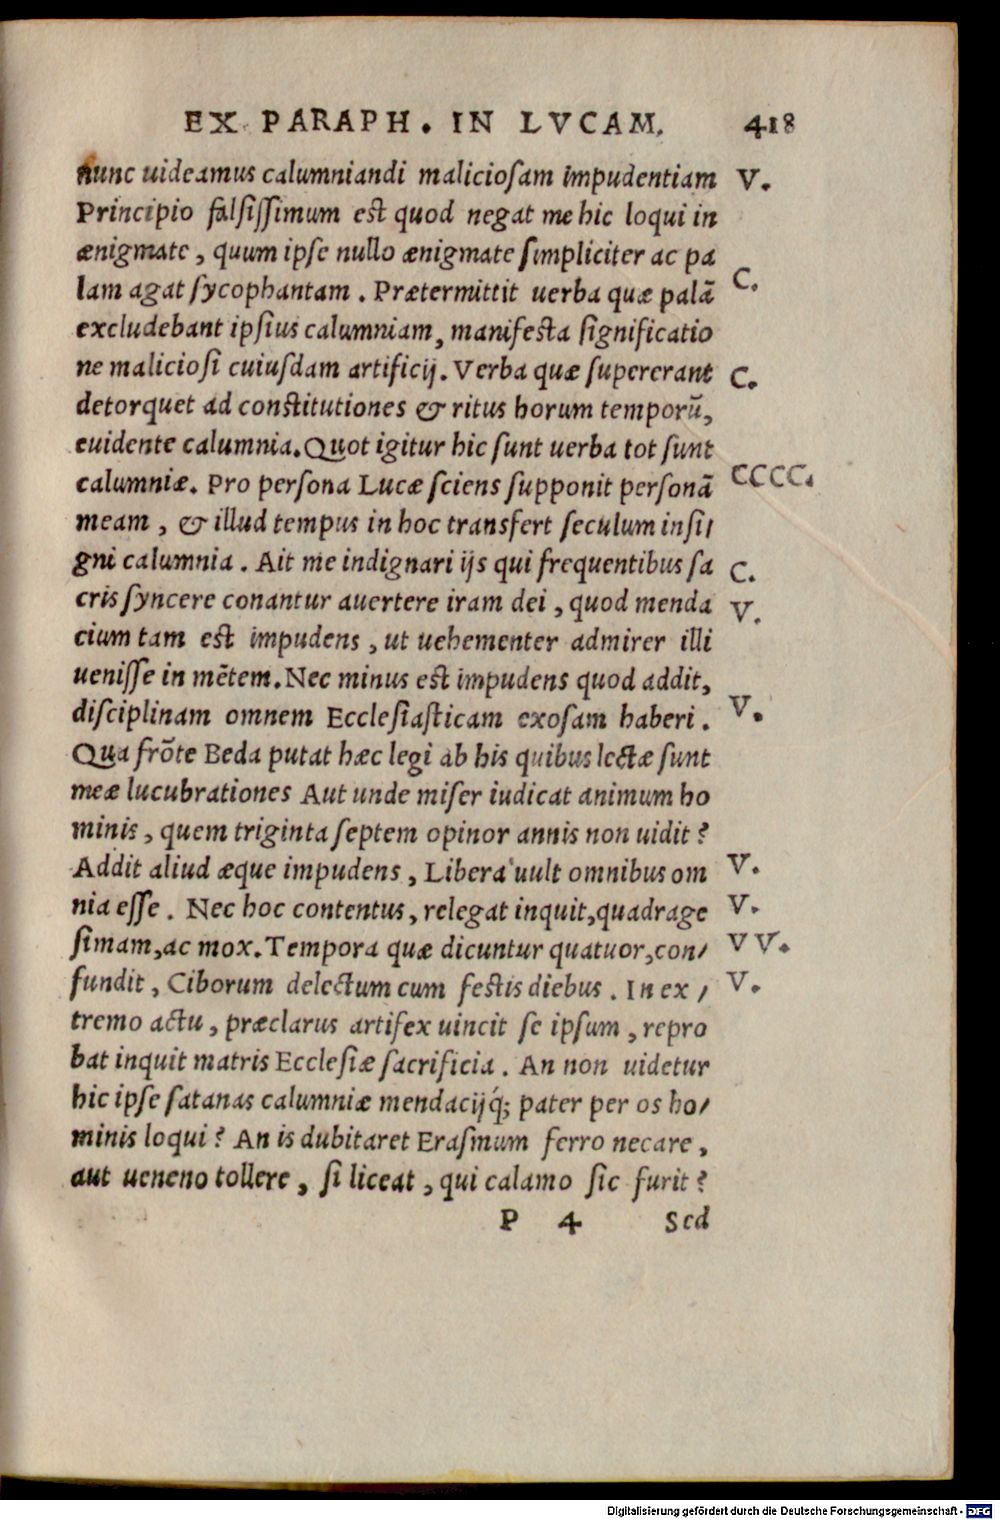 EX PARAPH. IN LVCAM. 418
nunc uideamus calumniandi maliciosam impudentiam V.
Principio falsissimum est quod negat me hic loqui in
ænigmate, quum ipse nullo ænigmate simpliciter ac pa
lam agat sycophantam. Prætermittit uerba quæ palā C.
excludebant ipsius calumniam, manifesta significatio
ne maliciosi cuiusdam artificij. Verba quæ supererant C.
detorquet ad constitutiones & ritus horum temporū,
euidente calumnia. Quot igitur hic sunt uerba tot sunt
calumniæ. Pro persona Lucæ sciens supponit personā CCCC.
meam, & illud tempus in hoc transfert seculum insi/
gni calumnia. Ait me indignari ijs qui frequentibus sa C.
cris syncere conantur auertere iram dei, quod menda V.
cium tam est impudens, ut uehementer admirer illi
uenisse in mētem. Nec minus est impudens quod addit,
disciplinam omnem Ecclesiasticam exosam haberi. V.
Qua frōte Beda putat hæc legi ab his quibus lectæ sunt
meæ lucubrationes Aut unde miser iudicat animum ho
minis, quem triginta septem opinor annis non uidit?
Addit aliud æque impudens, Libera uult omnibus om V.
nia esse. Nec hoc contentus, relegat inquit, quadrage V.
simam, ac mox. Tempora quæ dicuntur quatuor, con/ VV.
fundit, Ciborum delectum cum festis diebus. In ex/ V.
tremo actu, præclarus artifex uincit se ipsum, repro
bat inquit matris Ecclesiæ sacrificia. An non uidetur
hic ipse satanas calumniæ mendacijq́; pater per os ho/
minis loqui? An is dubitaret Erasmum ferro necare,
aut ueneno tollere, si liceat, qui calamo sic furit?
P 4 Sed
Digitalisierung gefördert durch die Deutsche Forschungsgemeinschaft - DFG